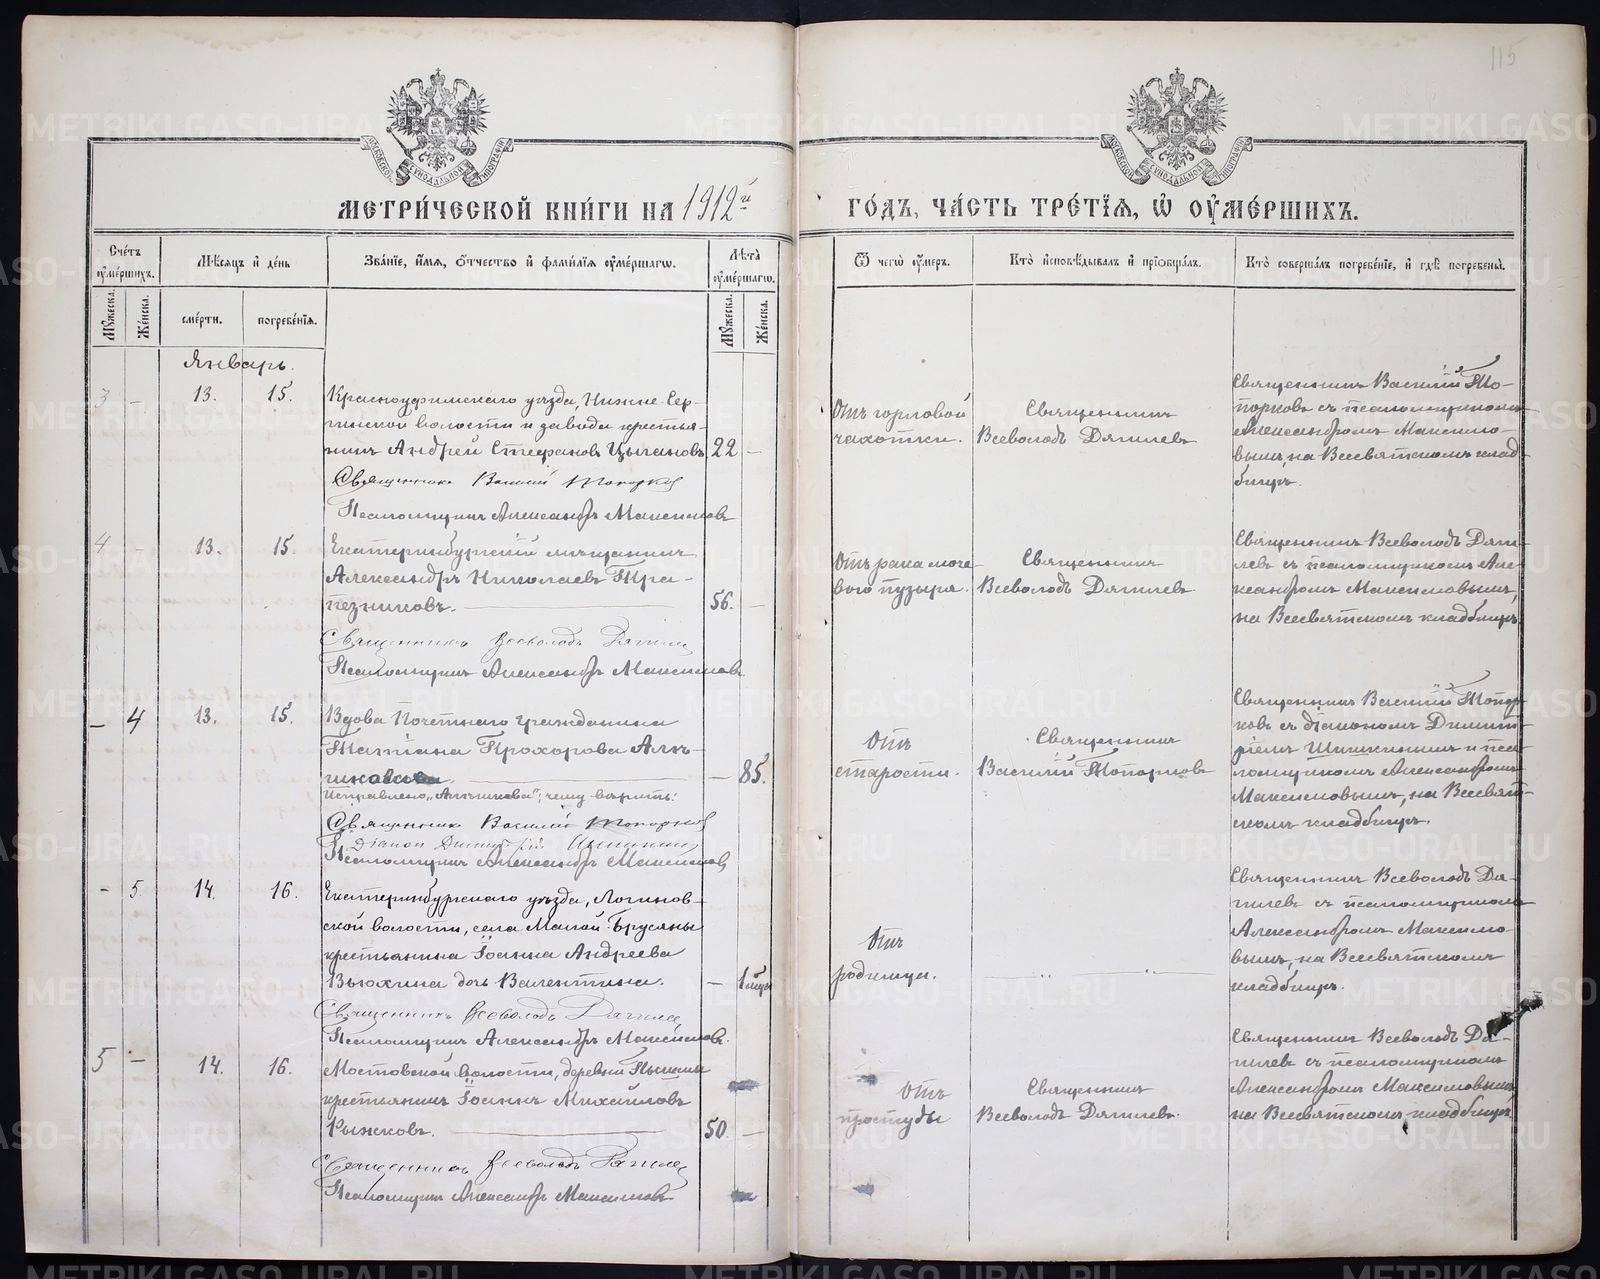 115
МЕТРИ́ЧЕСКОЙ КНИ́ГИ НА 1912й ГО́ДЪ, ЧА́СТЬ ТРЕ́ТІЯ, Ѡ҆ ОУ҆МЕ́РШИХЪ.
Сче́тъ оу҆ме́ршихъ.
Мѣ́сяцъ и҆ де́нь
Зва́нїе, и҆́мя, ѻ҆́тчество и҆ фамилїя оу҆ме́ршагѡ.
Лѣ́та оу҆ме́ршагѡ.
Ѿ чегѡ̀ оу҆́меръ.
Кто̀ и҆сповѣ́дывалъ и҆ прїѡбща́лъ.
Кто̀ соверша́лъ погребе́нїе, и҆ гдѣ̀ погребены̀.
Мꙋ́жеска.
Же́нска.
сме́рти.
погребе́нїя.
Мꙋ́жеска.
Же́нска.
Январь.
3 - 13. 15.
Красноуфимскаго уѣзда, Нижне-Сер-
гинской волости и завода крестья-
нинъ Андрей Стефановъ Цыгановъ 22 -
Священникъ Василий Топорков
Псаломщикъ Александръ Максимовъ
Отъ горловой
чахотки.
Священникъ
Всеволодъ Дягилевъ
Священникъ Василій То-
порковъ съ псаломщикомъ
Александромъ Максимо-
вымъ, на Всесвятскомъ клад-
бищѣ.
4 - 13. 15.
Екатеринбургскій мѣщанинъ
Александръ Николаевъ Тра-
пезниковъ. 56. -
Священникъ Всеволодъ Дягилев
Псаломщикъ Александръ Максимовъ
Отъ рака моче-
вого пузыря.
Священникъ
Всеволодъ Дягилевъ
Священникъ Всеволодъ Дяги-
левъ съ псаломщикомъ Але-
ксандромъ Максимовымъ,
на Всесвятскомъ кладбищѣ
- 4 13. 15.
Вдова Почетнаго гражданина
Татіана Прохорова Алѣ-
- 85.
чему вѣрить:
Священник Василий Топорков
Діакон Димитрій Шишкин
Псаломщикъ Александръ Максимовъ
Отъ
старости.
Священникъ
Василій Топорковъ
Священникъ Василій Топор-
ковъ съ діакономъ Димит-
ріемъ Шишкинымъ и пса-
ломщикомъ Александромъ
Максимовымъ, на Всесвят-
скомъ кладбищѣ.
- 5 14. 16.
Екатеринбургскаго уѣзда, Логинов-
ской волости, села Малой-Брусяны
крестьянина Іоанна Андреева
Вьюхина дочь Валентина. -
Священникъ Всеволодъ Дягилев
Псаломщикъ Александръ Максимовъ.
Отъ
родимца.
Священникъ Всеволодъ Дя-
гилевъ съ псаломщикомъ
Александромъ Максимо-
вымъ, на Всесвятскомъ
кладбищѣ.
5 - 14. 16.
Мостовской волости, деревни Пышмы
крестьянинъ Іоаннъ Михайловъ
Рыжковъ. 50. -
Священникъ Всеволодъ Дягилев
Псаломщикъ Александръ Максимовъ
Отъ
простуды
Священникъ
Всеволодъ Дягилевъ.
Священникъ Всеволодъ Дя-
гилевъ съ псаломщикомъ
Александромъ Максимовымъ
на Всесвятскомъ кладбищѣ